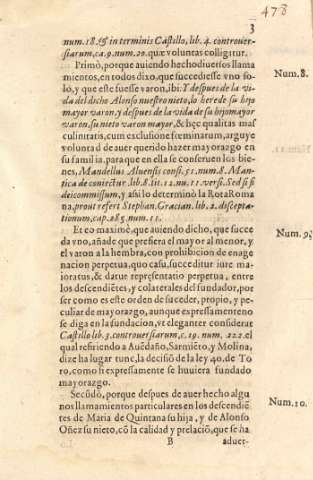 478
3
num. 18. & in terminis Castillo, lib. 4. controuer-
siarum, ca. 9. num. 20. quæ voluntas colligitur.
Primò, porque auiendo hecho diuersos llama
mientos, en todos dixo, que succediesse vno so-
lo, y que este fuesse varon, ibi: Y despues de la vi-
da del dicho Alonso nuestro nieto, lo herede su hijo
mayor varon, y despues de la vida de su hijo mayor
varon, su nieto varon mayor, & hęc qualitas mas
culinitatis, cum exclusione fœminarum, arguye
voluntad de auer querido hazer mayorazgo en
su familia, para que en ella se conseruen los bie-
nes, Mandellus Aluensis consi. 51. num. 8. Man-
tica de coniectur. lib. 8. tit. 12. nu. 11. versi. Sed si fi
deicommissum, y assi lo determinò la Rota Roma
na, prout refert Stephan. Gratian. lib. 2. discepta-
tionum, cap. 285. num. 11.
Num. 8.
Et eo maximè, que auiendo dicho, que succe
da vno, añade que prefiera el mayor al menor, y
el varon a la hembra, con prohibicion de enage
nacion perpetua, quo casu, succeditur iure ma-
ioratus, & datur repręsentatio perpetua, entre
los descendiẽtes, y colaterales del fundador, por
ser como es este orden de succeder, propio, y pe-
culiar de mayorazgo, aunque expressamenteno
se diga en la fundacion, vt eleganter considerat
Castillo lib. 3. controuersiarum, c. 19. num. 222. el
qual refiriendo a Auẽdaño, Sarmiẽto, y Molina,
dize ha lugar tunc, la decisiõ de la ley 40. de To
ro, como si expressamente se huuiera fundado
mayorazgo.
Num. 9.
Secũdò, porque despues de auer hecho algu
nos llamamientos particulares en los descendiẽ
tes de Maria de Quintana su hija, y de Alonso
Oñez su nieto, cõ la calidad y prelaciõ, que se ha
Num. 10.
B
aduer-